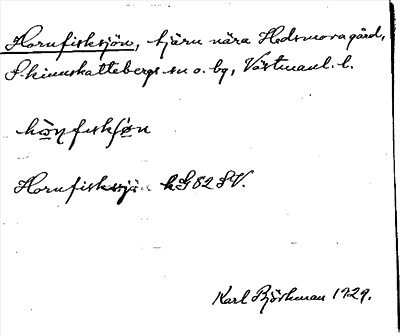 Hornfisksjön, tjärn nära Hedsmora gård,
Skinnskattebergs sn o. bg, Västmanl. l.
hɷ̀ɳfiskʃøn
Hornfisksjön kG 82 SV.
Karl Björkman 1929.